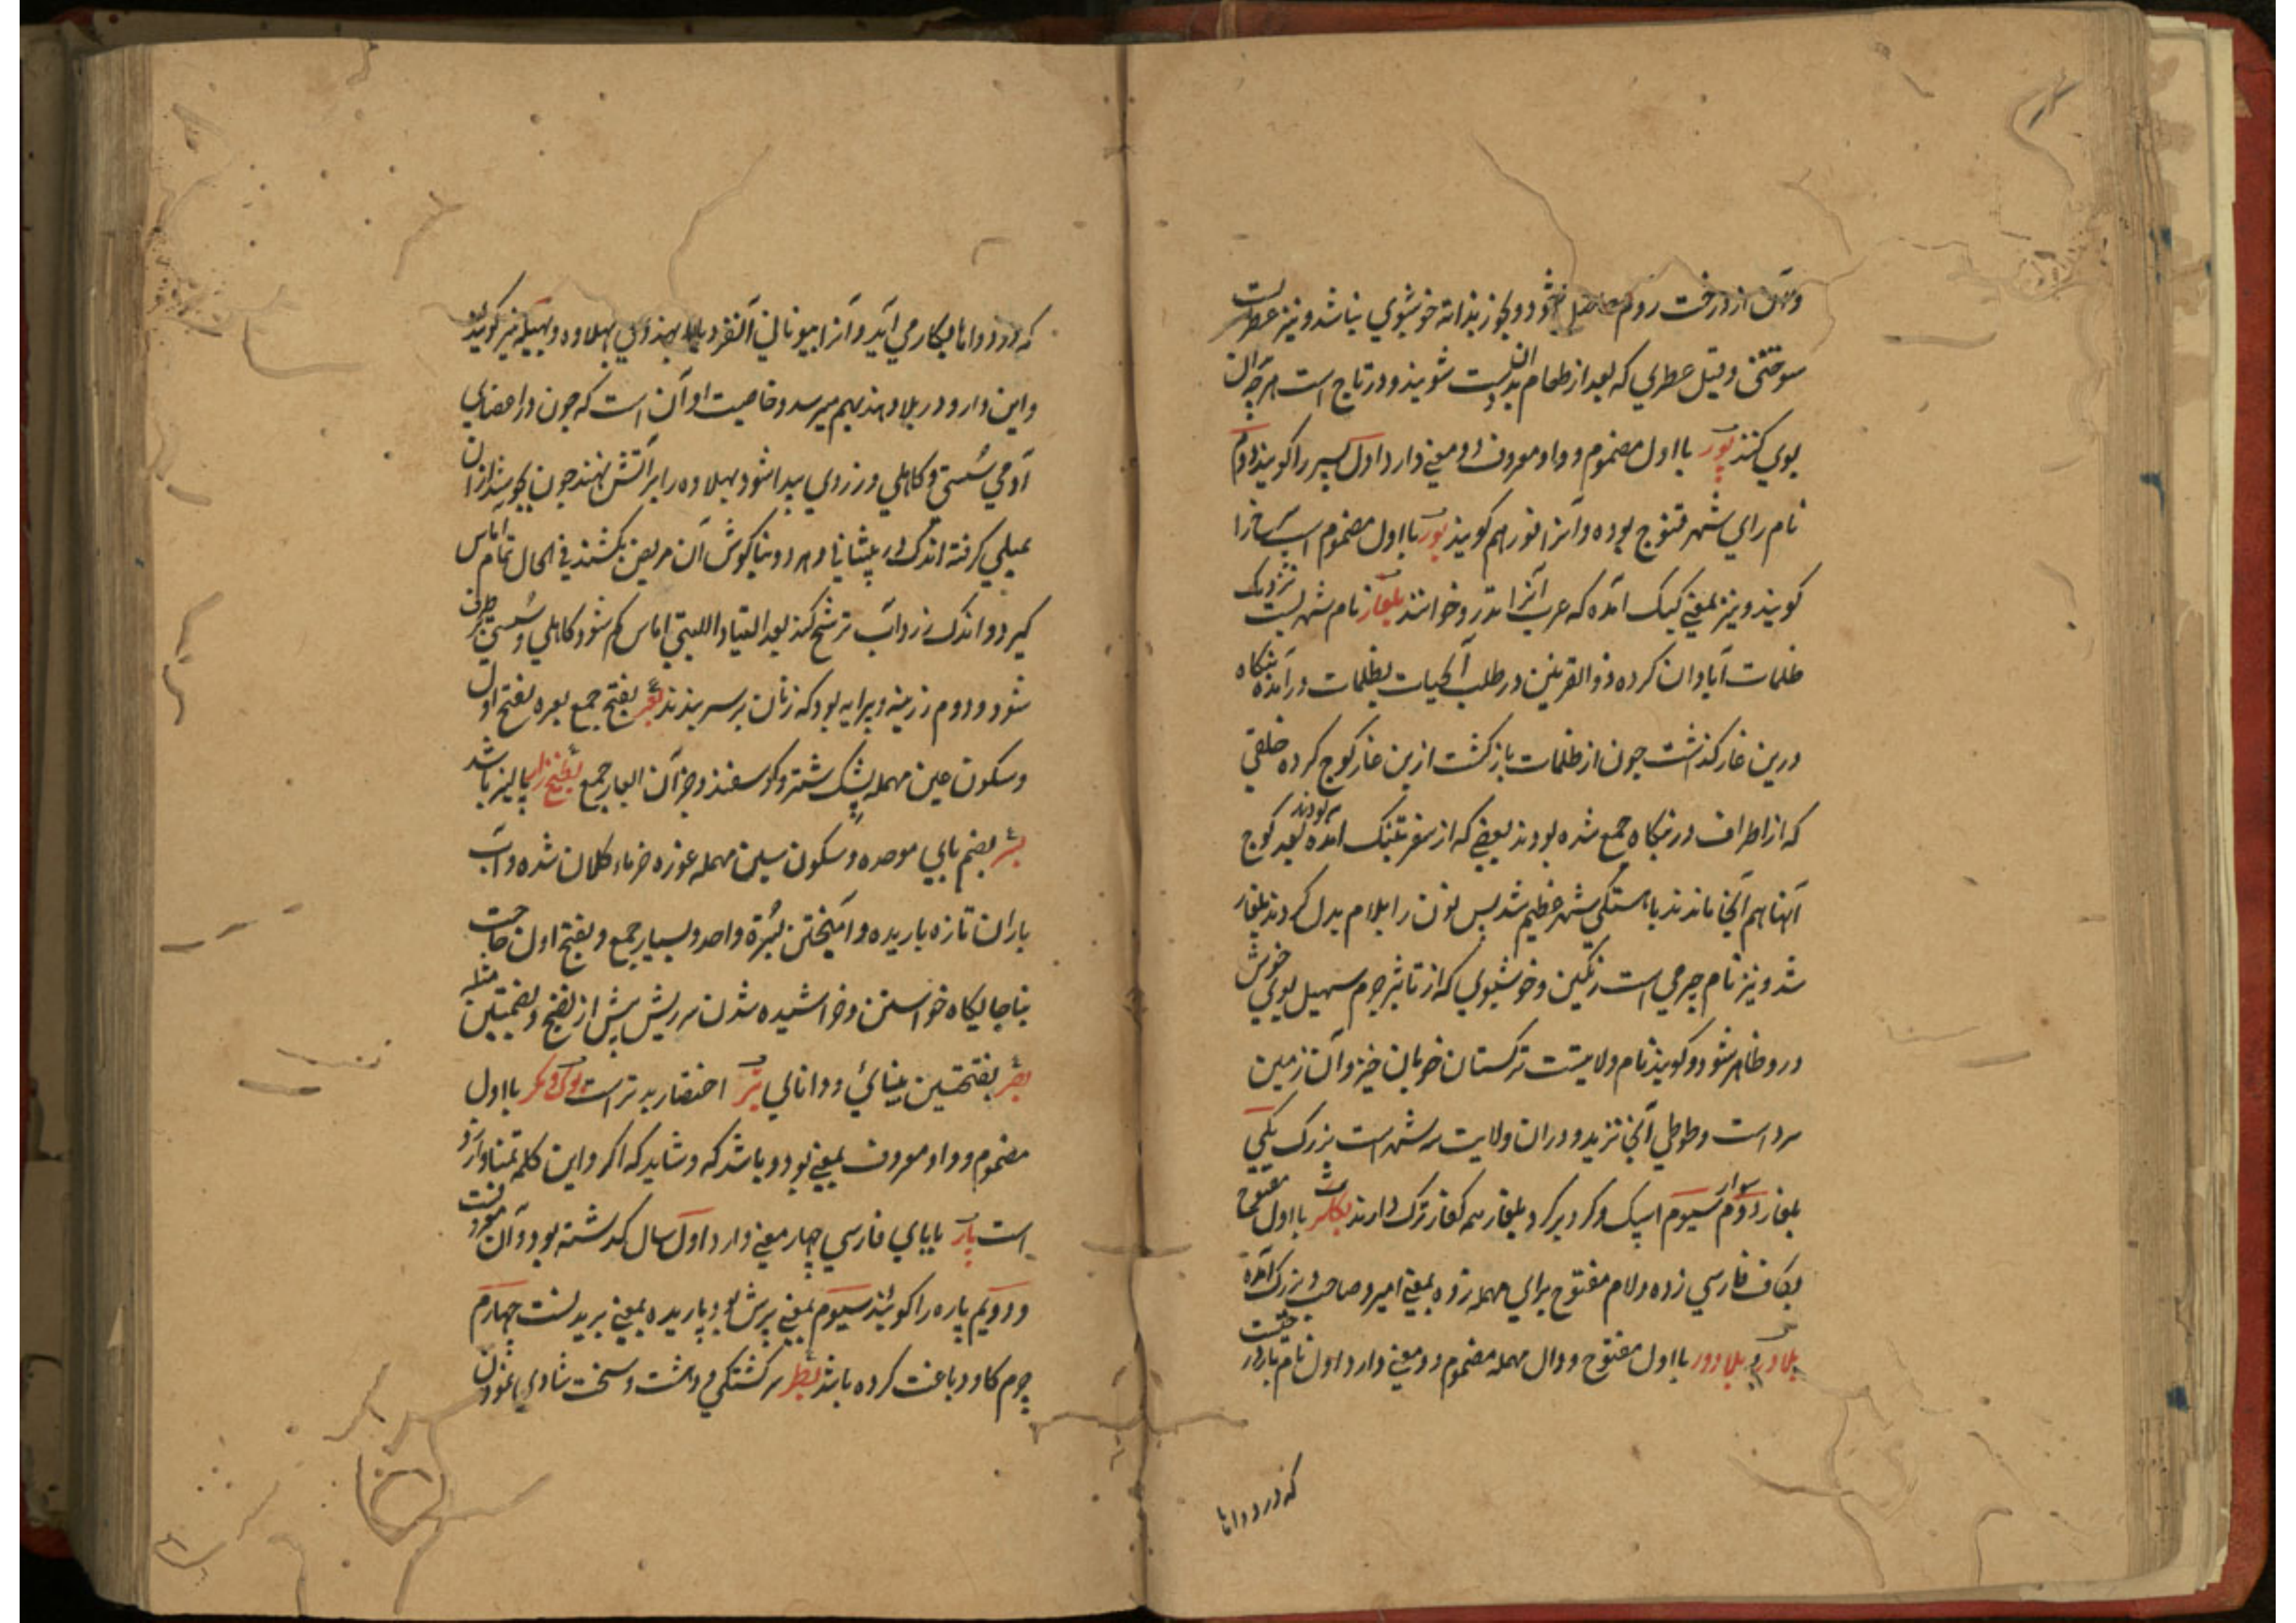 وآن از درخت روم حاصل شود و بخور بذاته خوشبوی نباشد و نیز عطریست
سوختنی و قیل عطری که بعد از طعام بدان دست شویند و در تاج است هرچه بدان
بوی کنند پور بااول مضموم و واو معروف دو معنی دارد اول پسر را کویند دوم
نام رای شهر قنوج بوده و آنرا فور هم کویند بور بااول مضموم اسپ
کویند و نیز بمعنی کبک آمده که عرب آنرا تدرو خوانند بلغار نام شهریست نزدیک
ظلمات آبادان کرده ذوالقرنین در طلب آبحیات بظلمات درآمد بنکاه
درین غار کذاشت چون از ظلمات بازکشت ازین غار کوچ کرده خلقی
که از اطراف در بنکاه جمع شده بودند بعضی که از سفر بتنک آمده بودند بعد کوچ
آنها هم آنجا ماندند باهستکی شهر عظیم شد پس نون را بلام بدل کردند بلغار
شد و نیز نام چرمی است رنکین و خوشبوی که از تاثیر جرم سهیل بوی خوش
درو ظاهر شود و کویند نام ولایتیست ترکستان خوبان خیز و آن زمین
سرد است و طوطی آنجا نزید و دران ولایت سه شهر است بزرک یکی
بلغار دوم سوار سیوم اسپک و کرد برکرد بلغار همه کفار ترک دارند بکلر بااول مفتوح
بکاف فارسی زده و لام مفتوح برای مهمله زده بمعنی امیر و صاحب و بزرک آمده
بلادر و بلادور بااول مفتوح و دال مهمله مضموم دو معنی دارد اول نام بار درختیست
که در دواها
که در دواها بکار می آید و آنرا بیونانی انقردیا و بهندوی بهلاوه و بهیله نیز کویند
و این دارو در بلاد هند بهم میرسد و خاصیت او آن است که چون در اعضای
آدمی سستی و کاهلی و زردی پیدا شود بهلاوه را بر آتش نهند چون بجوشد ازان
بمیلی کرفته اندک در پیشانی و هر دو بناکوش آن مریض بکشند فی الحال تمام آماس
کیرد و اندک زرداب ترشح کند بعد آماس کم شود کاهلی و سستی برطرف
شود و دوم زرینه و پیرایه بود که زنان بر سر بندند بعر بفتح جمع بعره بفتح اول
و سکون عین مهمله پشک شتر و کوسفند و جز آن ابعار جمع پالیز باشد
بسر بضم بای موحده و سکون سین مهمله غوزه خرماء کلان شده و آب
باران تازه باریده و آمیختن بسرة واحد و بسیار جمع و بفتح اول حاجت
بناجایکاه خواستن و خراشیده شدن سر ریش پیش از نضج و بضمتین مثله
بصر بفتحتین بینائی و دانائی بتر اختصار بدتر است بوک و مکر بااول
مضموم و واو معروف بمعنی بود و باشد که و شاید که اکر و این کلمه تمنا و آرزو
است پار بابای فارسی چهار معنی دارد اول سال کذشته بود و آن معروفست
و دویم پاره را کویند سیوم بمعنی پرش بود پاریده بمعنی پریدنست چهارم
چرم کاو دباغت کرده باشد بطر سرکشتکی و دهشت و سخت شادی نمودن